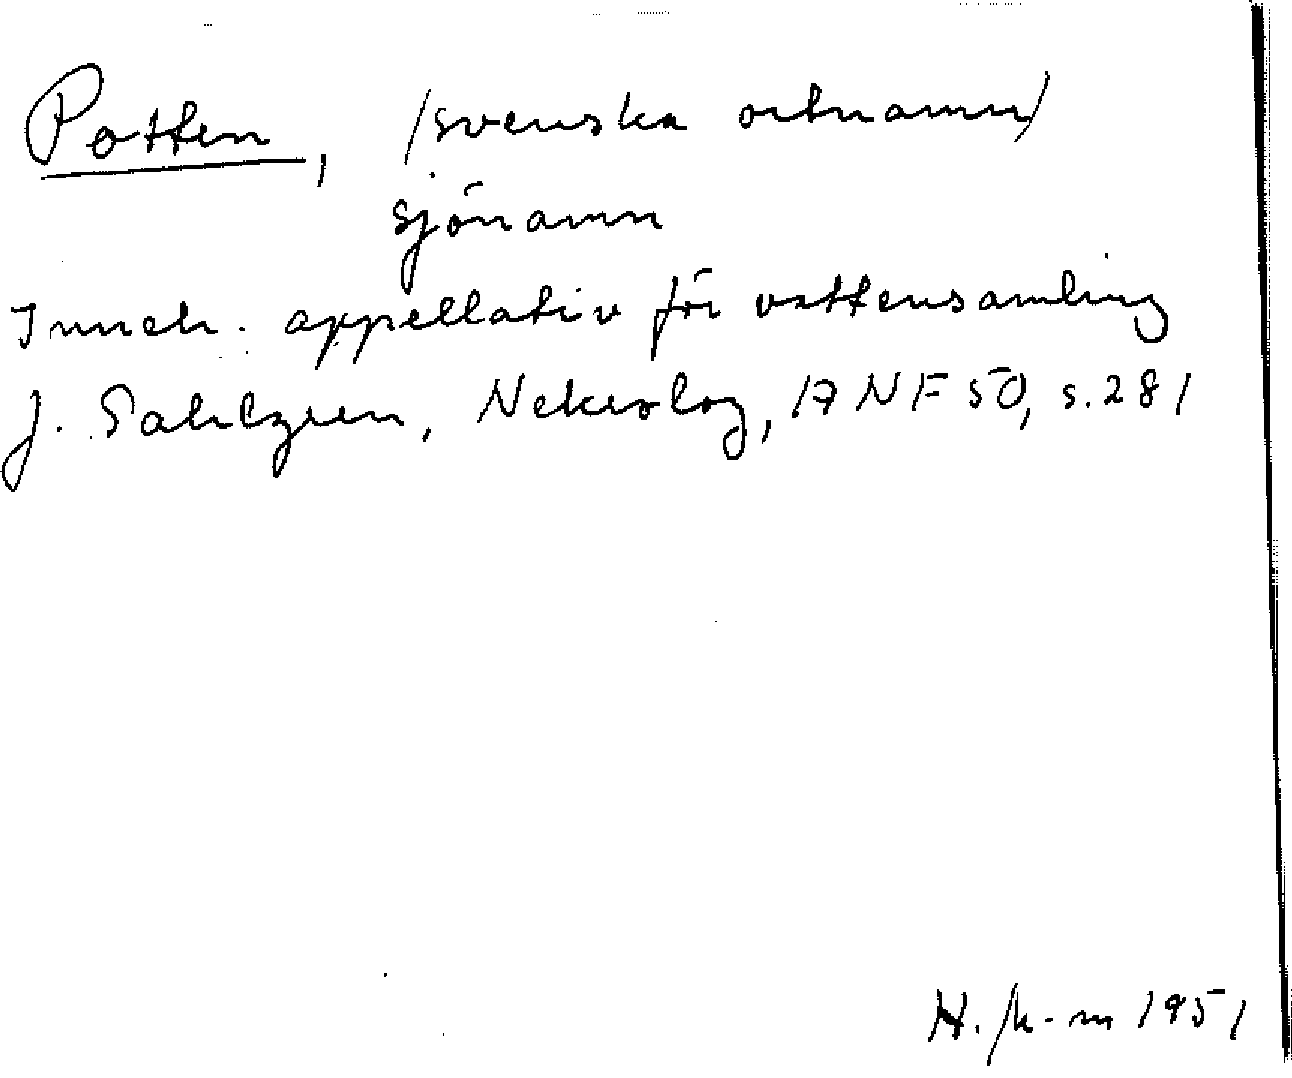 Potten, /svenska ortnamn/
sjönamn
Inneh. appellativ för vattensamling
J. Sahlgren, Nekrolog, ANF 50, s. 281
1951